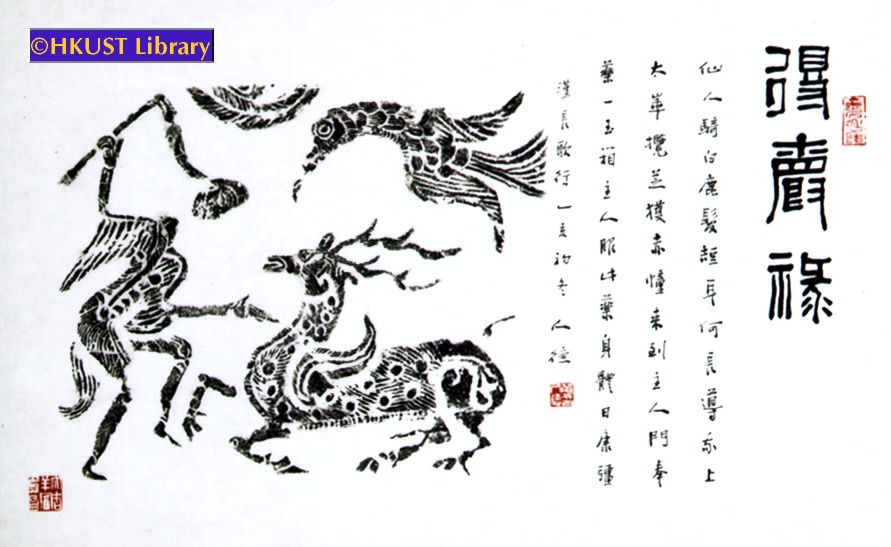 ©HKUST Library
得爵祿
仙人騎白鹿髮短耳何長導我上
太華攬芝獲赤幢來到主人門奉
藥一玉箱主人服此藥身體日康彊
漢長歌行 乙亥初冬 人德